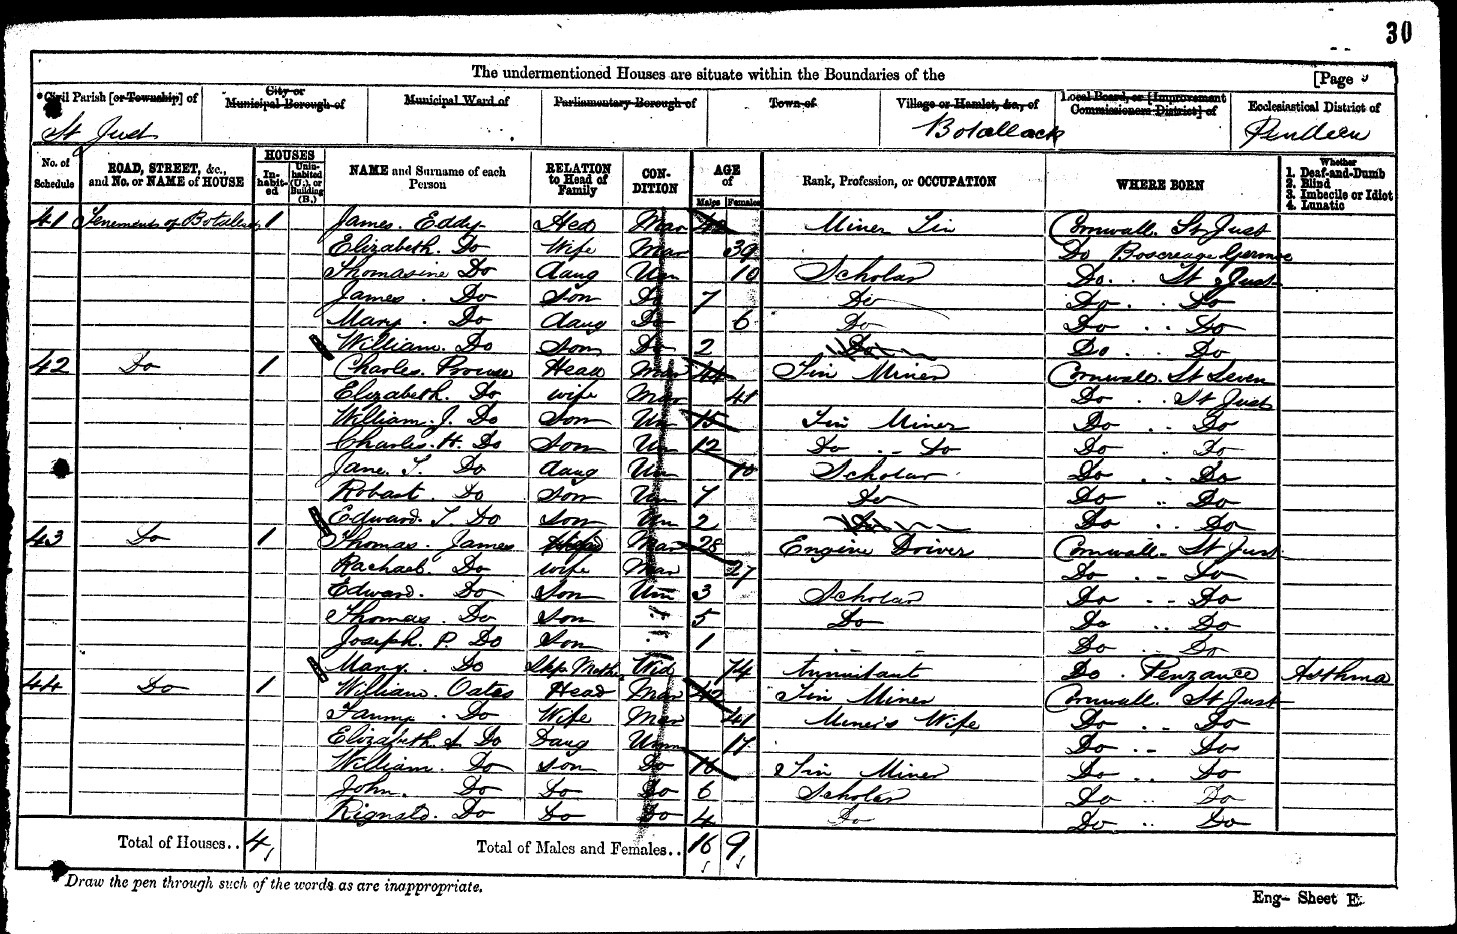 30
The undermentioned Houses are situate within the Boundaries of the [Page
Civil Parish [or Township] of City or Municipal Borough of Municipal Ward of Parliamentary Borough of Town of Village or Hamlet, &c., of Local Board, or [Improvement Commissioners District] of Ecclesiastical District of
St Just Botallack Pendeen
No. of Schedule ROAD, STREET, &c., and No. or NAME of HOUSE HOUSES Inhabited Uninhabited (U.), or Building (B.) NAME and Surname of each Person RELATION to Head of Family CONDITION AGE of Males Females Rank, Profession, or OCCUPATION WHERE BORN Whether 1. Deaf-and-Dumb 2. Blind 3. Imbecile or Idiot 4. Lunatic
41 Tenements of Botallack 1 James. Eddy Head Mar 42 Miner Tin Cornwall. St Just
Elizabeth. Do Wife Mar 39 Do Boscreage Germoe
Thomasine Do daug Un 10 Scholar Do. . St Just
James. Do son Do 7 Do Do. . Do
Mary. Do daug Do 6 Do Do . . Do
William. Do Son Do 2 Do Do . . Do
42 Do 1 Charles. Head Mar 44 Tin Miner Cornwall. St Leven
Elizabeth. Do wife Mar 41 Do . . St Just
William. J. Do Son Un 15 Tin Miner Do . . Do
Charles. H. Do Son Un 12 Do . . Do Do . . Do
Jane. T. Do daug Un 10 Scholar Do . . Do
Robart. Do Son Un 7 Do Do . . Do
Edward. T. Do Son Un 2 Do Do . . Do
43 Do 1 Thomas. James Head Mar 28 Engine Driver Cornwall - St Just
Rachael. Do wife Mar 27 Do . - Do
Edward. Do Son Un 3 Scholar Do - - Do
Thomas. Do Son 5 Do Do . . Do
Joseph. P. Do Son 1 Do . Do
Mary. Do Step Mother Wid 74 Annuitant Do . Penzance Asthma
44 Do 1 William. Oates Head Mar 42 Tin Miner Cornwall. St Just
Fanny. Do Wife Mar 41 Miner's Wife Do . . Do
Elizabeth. A. Do Daug Unm 17 Do . - Do
William. Do son Do 16 Tin Miner Do . . Do
John. Do Do Do 6 Scholar Do . . Do
Rignald. Do Do Do 4 Do Do . . Do
Total of Houses.. 4 Total of Males and Females.. 16 9
Draw the pen through such of the words as are inappropriate.
Eng- Sheet E.